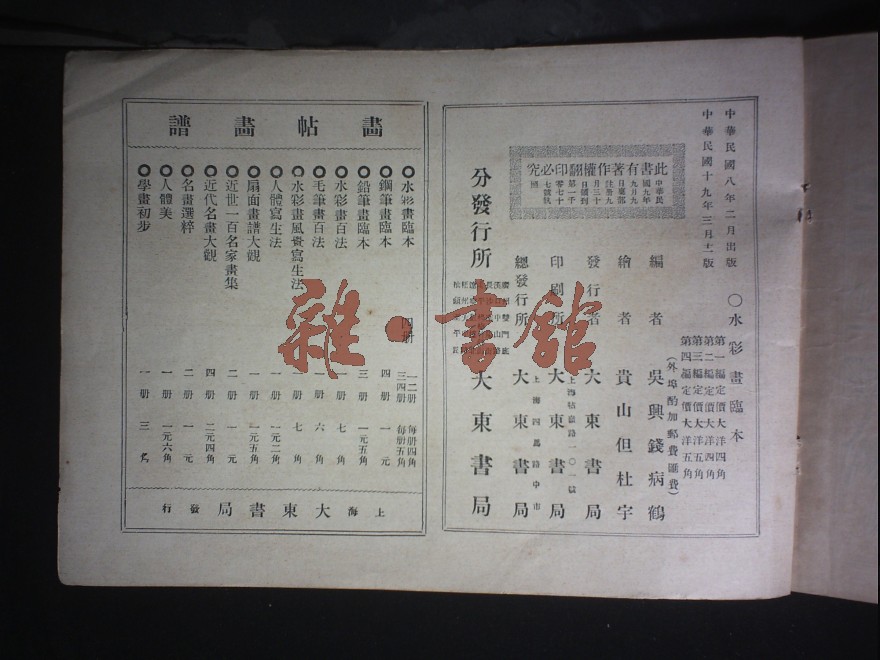 中華民國八年二月出版
中華民國十九年三月十二版
○水彩畫臨本
第一編定價大洋四角
第二編定價大洋四角
第三編定價大洋五角
第四編定價大洋五角
(外埠酌加郵費匯費)
編者 吳興錢病鶴
繪者 貴山但杜宇
發行者 大東書局
印刷所 大東書局
總發行所 大東書局
上海四馬路中市
分發行所 大東書局
此書有著作權翻印必究
畫帖畫譜
水彩畫臨本 四册 一二册 每册四角
三四册 每册五角
鋼筆畫臨本 四册 一元
鉛筆畫臨本 三册 一元五角
水彩畫百法 一册 七角
毛筆畫百法 一册 六角
水彩畫風景寫生法 一册 七角
人體寫生法 一册 一元二角
扇面畫譜大觀 一册 一元五角
近世一百名家畫集 二册 一元
近代名畫大觀 四册 二元四角
名畫選粹 二册 一元
人體美 一册 一元六角
學畫初步 一册 三角
上海大東書局發行
雜·書館